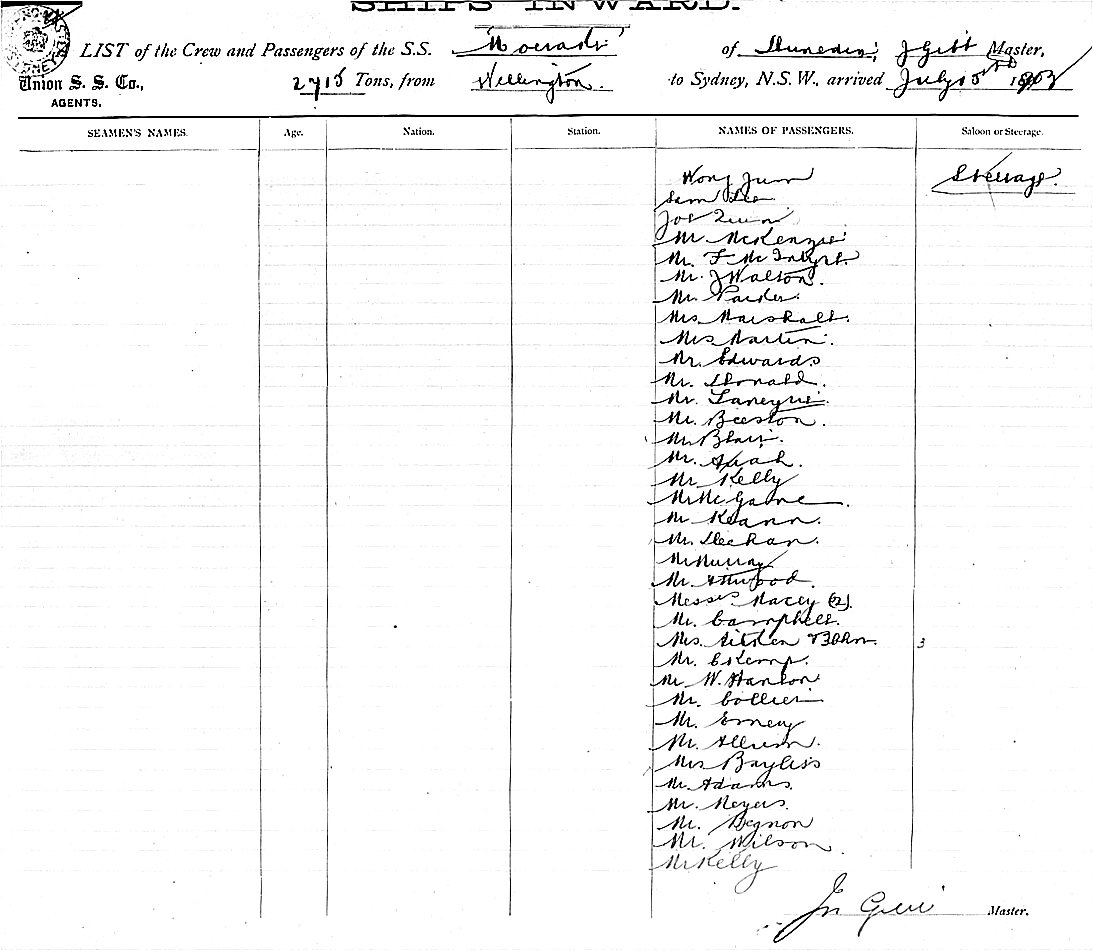 SHIPS INWARD.
LIST of the Crew and Passengers of the S.S. Mocraki of Dunedin, J Gibb Master,
Union S. S. Co., 2715 Tons, from Wellington. to Sydney, N.S.W., arrived July 5
AGENTS.
SEAMEN'S NAMES. Age. Nation. Station. NAMES OF PASSENGERS. Saloon or Steerage.
Wong Steerage.
Sam Lee
Joe Quinn
Mr McKenzie
Mr. F McIntyre.
Mr. J Walton.
Mr. Parker.
Mrs Marshall.
Mrs Martin.
Mr. Edwards
Mr. Donald.
Mr.
Mr. Beeston.
Mr Blair.
Mr. Apah.
Mr Kelly
Mr McGarne
Mr Keann.
Mr. Deehan.
Mr Murray
Mr. Attwood.
Messrs Macey (2).
Mr. Campbell.
Mrs. Aitken 3
Mr. E Kemp.
Mr W. Hanlon
Mr. Collier
Mr. Emery
Mr. Allison.
Mrs Bayliss
Mr. Adams.
Mr. Meyers.
Mr. Begnon
Mr. Wilson
Mr Kelly
Master.